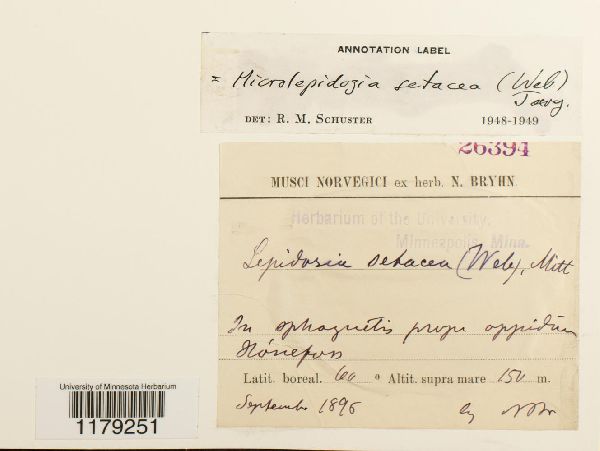 ANNOTATION LABEL
= Microlepidozia setacea (Web)
Joerg.
DET: R. M. SCHUSTER 1948-1949
26394
MUSCI NORVEGICI ex herb. N. BRYHN
Herbarium of the University,
Minneapolis, Minn.
Lepidozia setacea (Web), Mitt
In sphagnetis prope oppidum
Hónefoss
Latit. boreal. 60 ° Altit. supra mare 150 m.
September 1896
University of Minnesota Herbarium
1179251